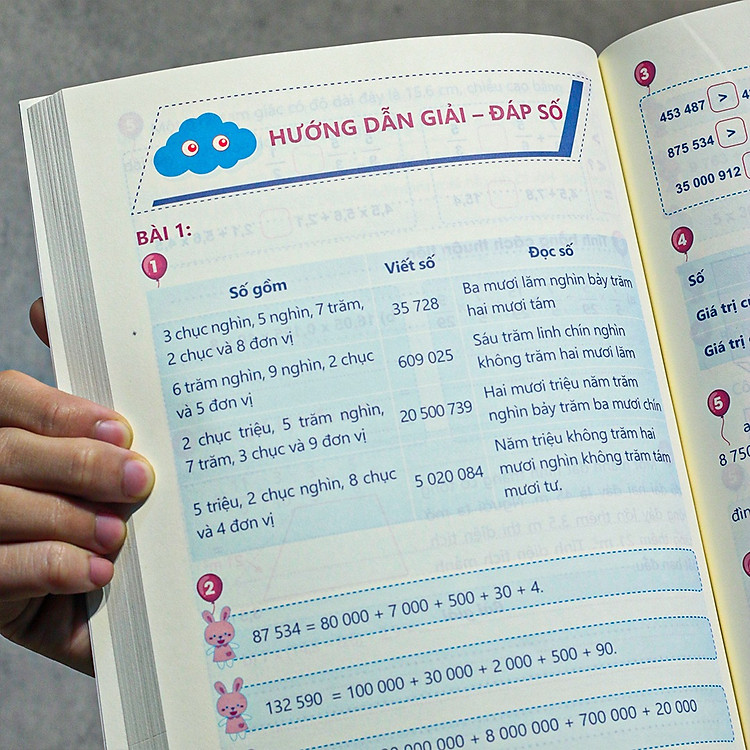 HƯỚNG DẪN GIẢI – ĐÁP SỐ
BÀI 1:
1
Số gồm
Viết số
Đọc số
3 chục nghìn, 5 nghìn, 7 trăm,
2 chục và 8 đơn vị
35 728
Ba mươi lăm nghìn bảy trăm
hai mươi tám
6 trăm nghìn, 9 nghìn, 2 chục
và 5 đơn vị
609 025
Sáu trăm linh chín nghìn
không trăm hai mươi lăm
2 chục triệu, 5 trăm nghìn,
7 trăm, 3 chục và 9 đơn vị
20 500 739
Hai mươi triệu năm trăm
nghìn bảy trăm ba mươi chín
5 triệu, 2 chục nghìn, 8 chục
và 4 đơn vị
5 020 084
Năm triệu không trăm hai
mươi nghìn không trăm tám
mươi tư.
2
87 534 = 80 000 + 7 000 + 500 + 30 + 4.
132 590 = 100 000 + 30 000 + 2 000 + 500 + 90.
000 000 + 8 000 000 + 700 000 + 20 000
3
453 487 > 4
875 534 >
35 000 912
4
Số
Giá trị
Giá trị
5
a
8 750